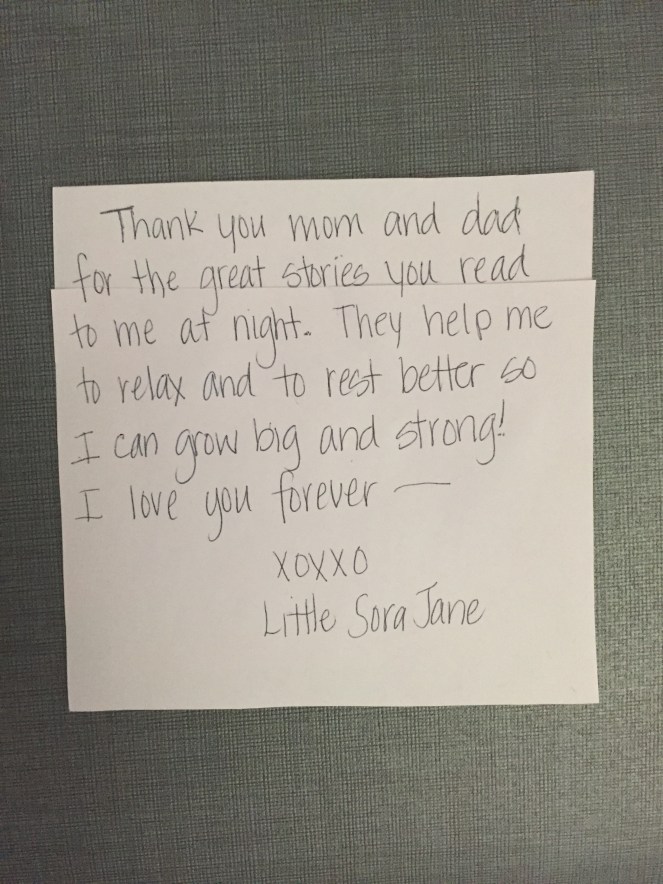 Thank you mom and dad
for the great stories you read
to me at night. They help me
to relax and to rest better so
I can grow big and strong!
I love you forever —
xoxxo
Little Sora Jane